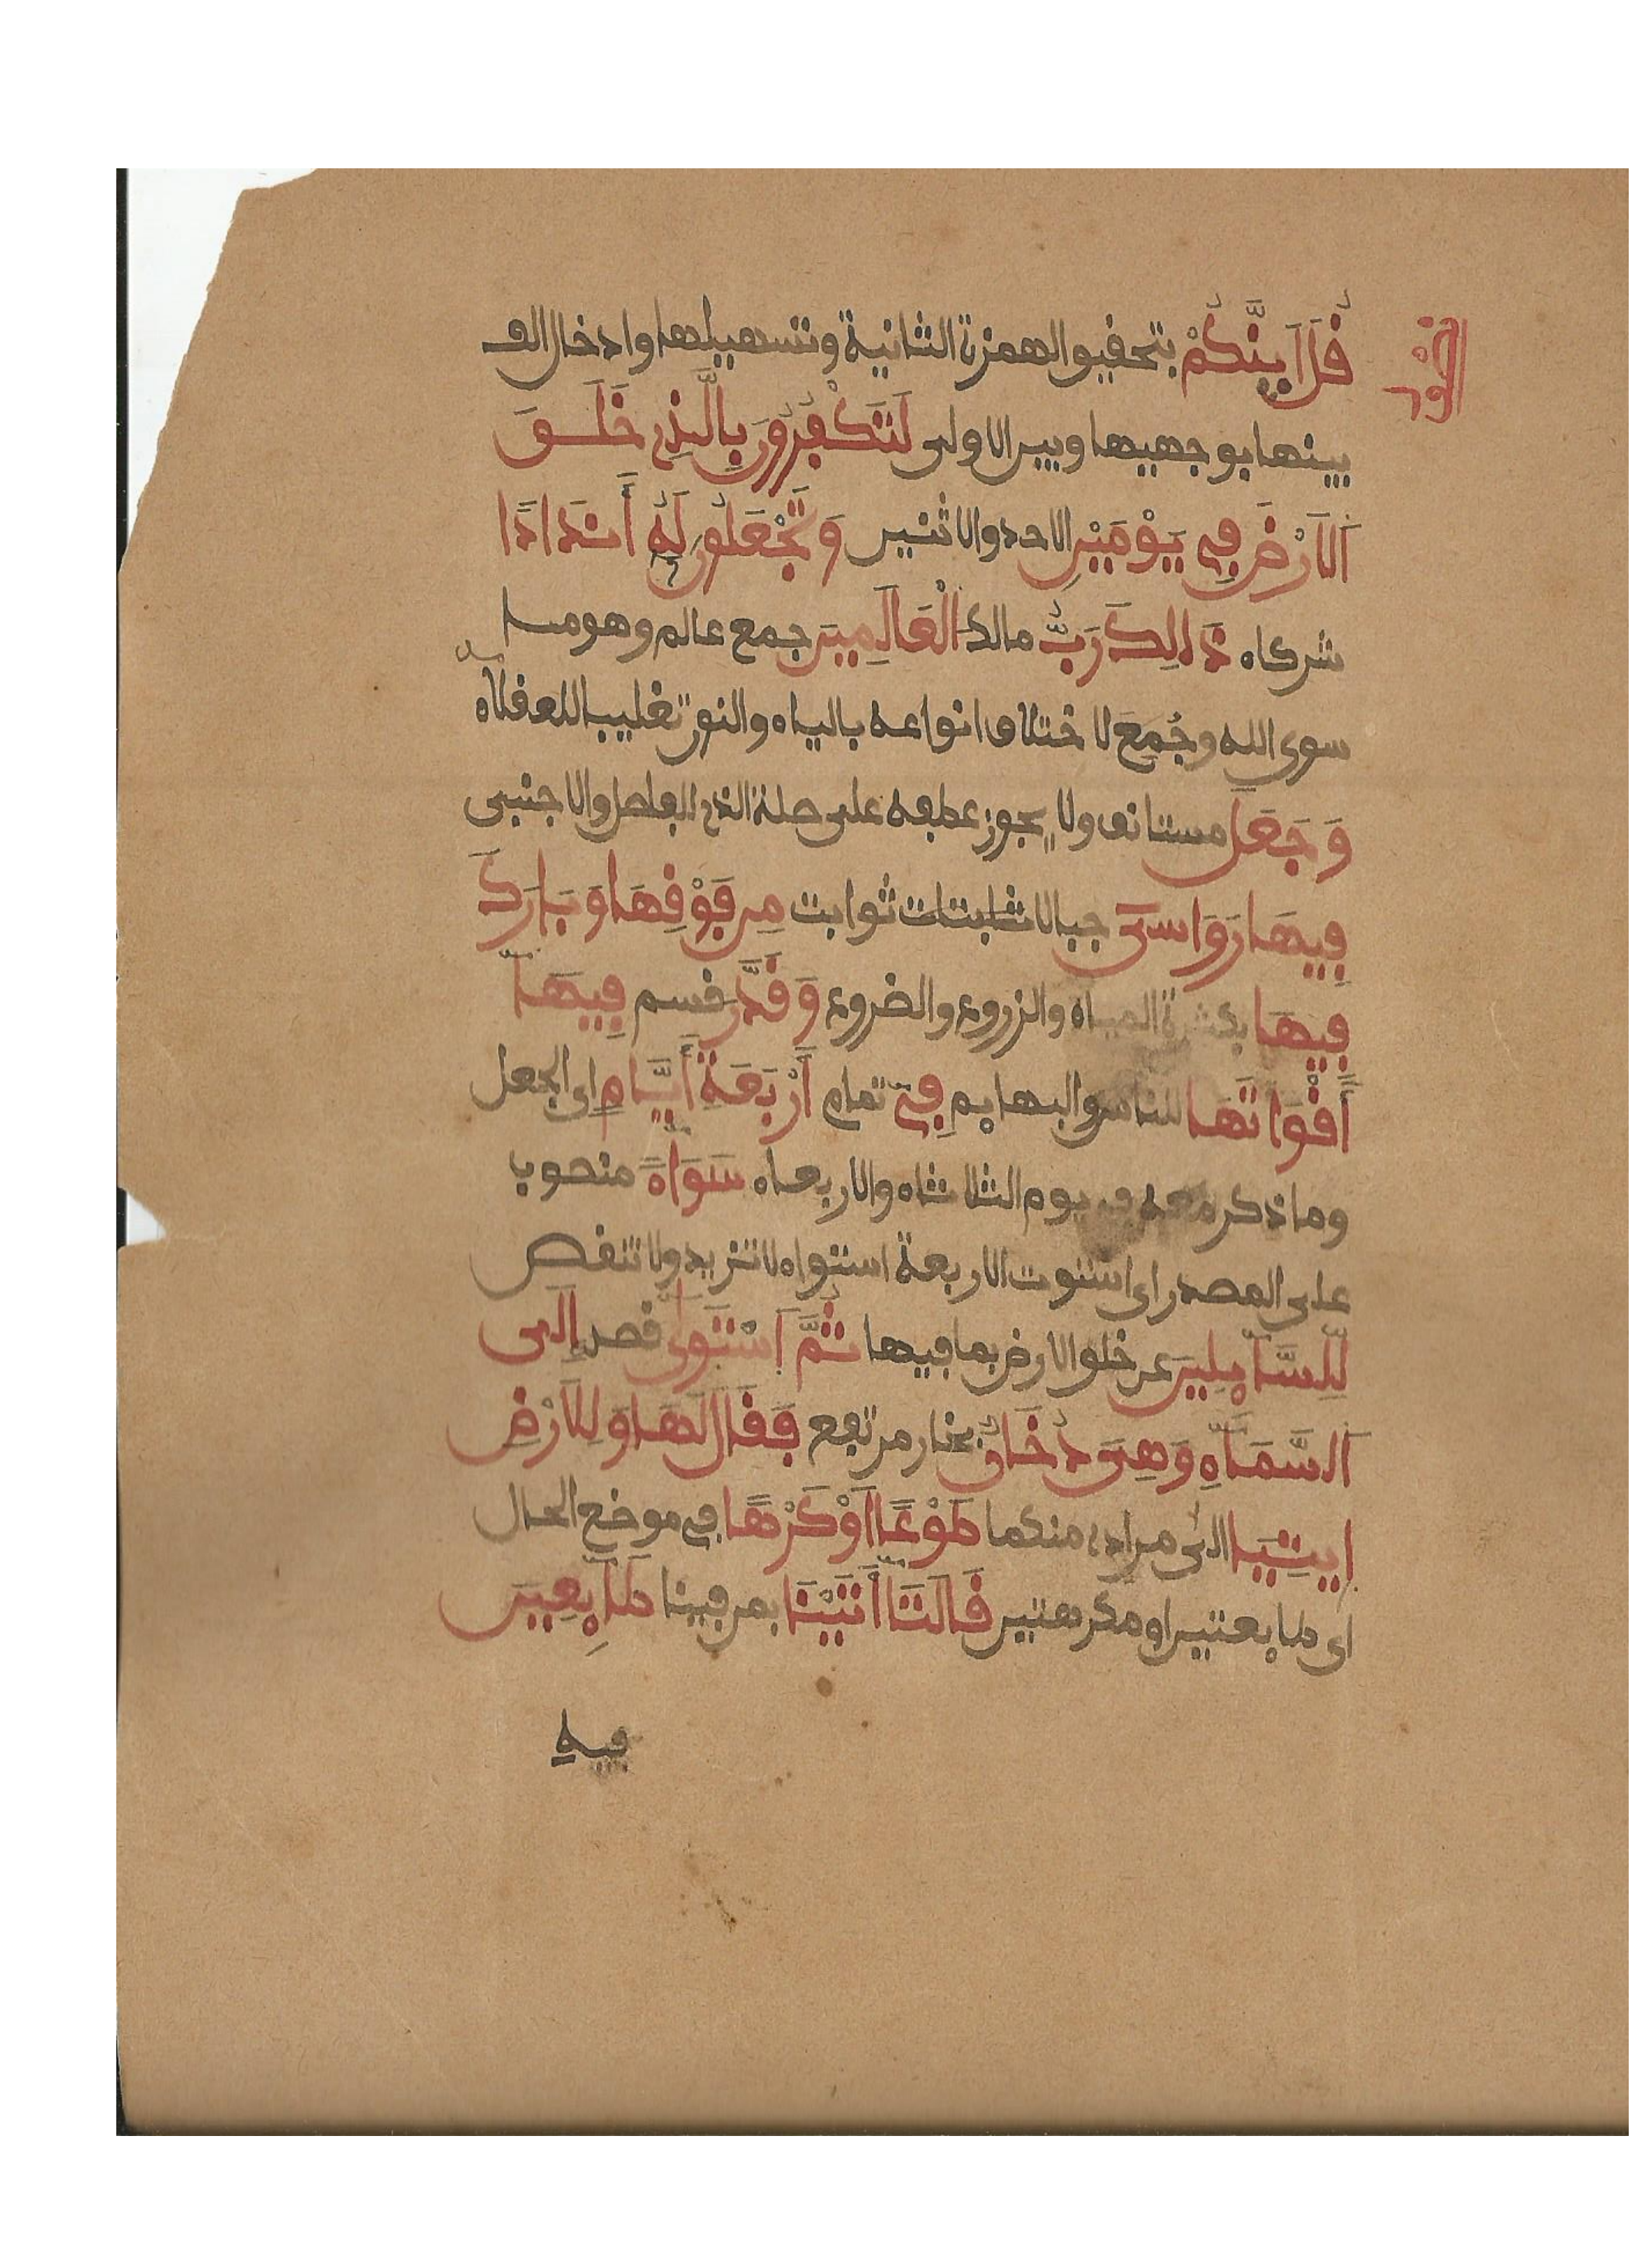 قُلَ اَيِنَّكُمْ بتحقيق الهمزة الثانية وتسهيلها وادخال الف
بينها بوجهيها وبين الاولى لَتَكْفُرُونَ بِالَّذِى خَلَقَ
اَلَارْضَ فِى يَوْمَيْنِ الاحد والاثنين وَتَجْعَلُونَ لَهُ أَندَادًا
شركاء ذَالِكَ رَبُّ مالك الْعَالَمِينَ جمع عالم وهو ما
سوى الله وجُمِعَ لاختلاف انواعه بالياء والنون تغليبا للعقلاء
وَجَعَلَ مستانف ولا يجوز عطفه على صلة الذى للفاصل الاجنبى
فِيهَا رَوَاسِىَ جبالا ثابتات ثوابت مِن فَوْقِهَا وَبَارَكَ
فِيهَا بكثرة المياه والزروع والضروع وَقَدَّرَ قسم فِيهَا
أَقْوَاتَهَا للناس والبهايم فِى تمام أَرْبَعَةِ أَيَّامٍ اى الجعل
وما ذكر معه فى يوم الثلاثاء والاربعاء سَوَاءً منصوب
على المصدر اى استوت الاربعة استواء لا تزيد ولا تنقص
لِلسَّآيِلِينَ عن خلق الارض بما فيها ثُمَّ اَسْتَوَى قصد إِلَى
اَلسَّمَآءِ وَهِىَ دُخَانٌ بخار مرتفع فَقَالَ لَهَا وَلِلَارْضِ
اِيتِيَا الى مرادى منكما طَوْعًا اَوْ كَرْهًا فى موضع الحال
اى طايعتين او مكرهتين قَالَتَا أَتَيْنَا بمن فينا طَآيِعِينَ
فيه